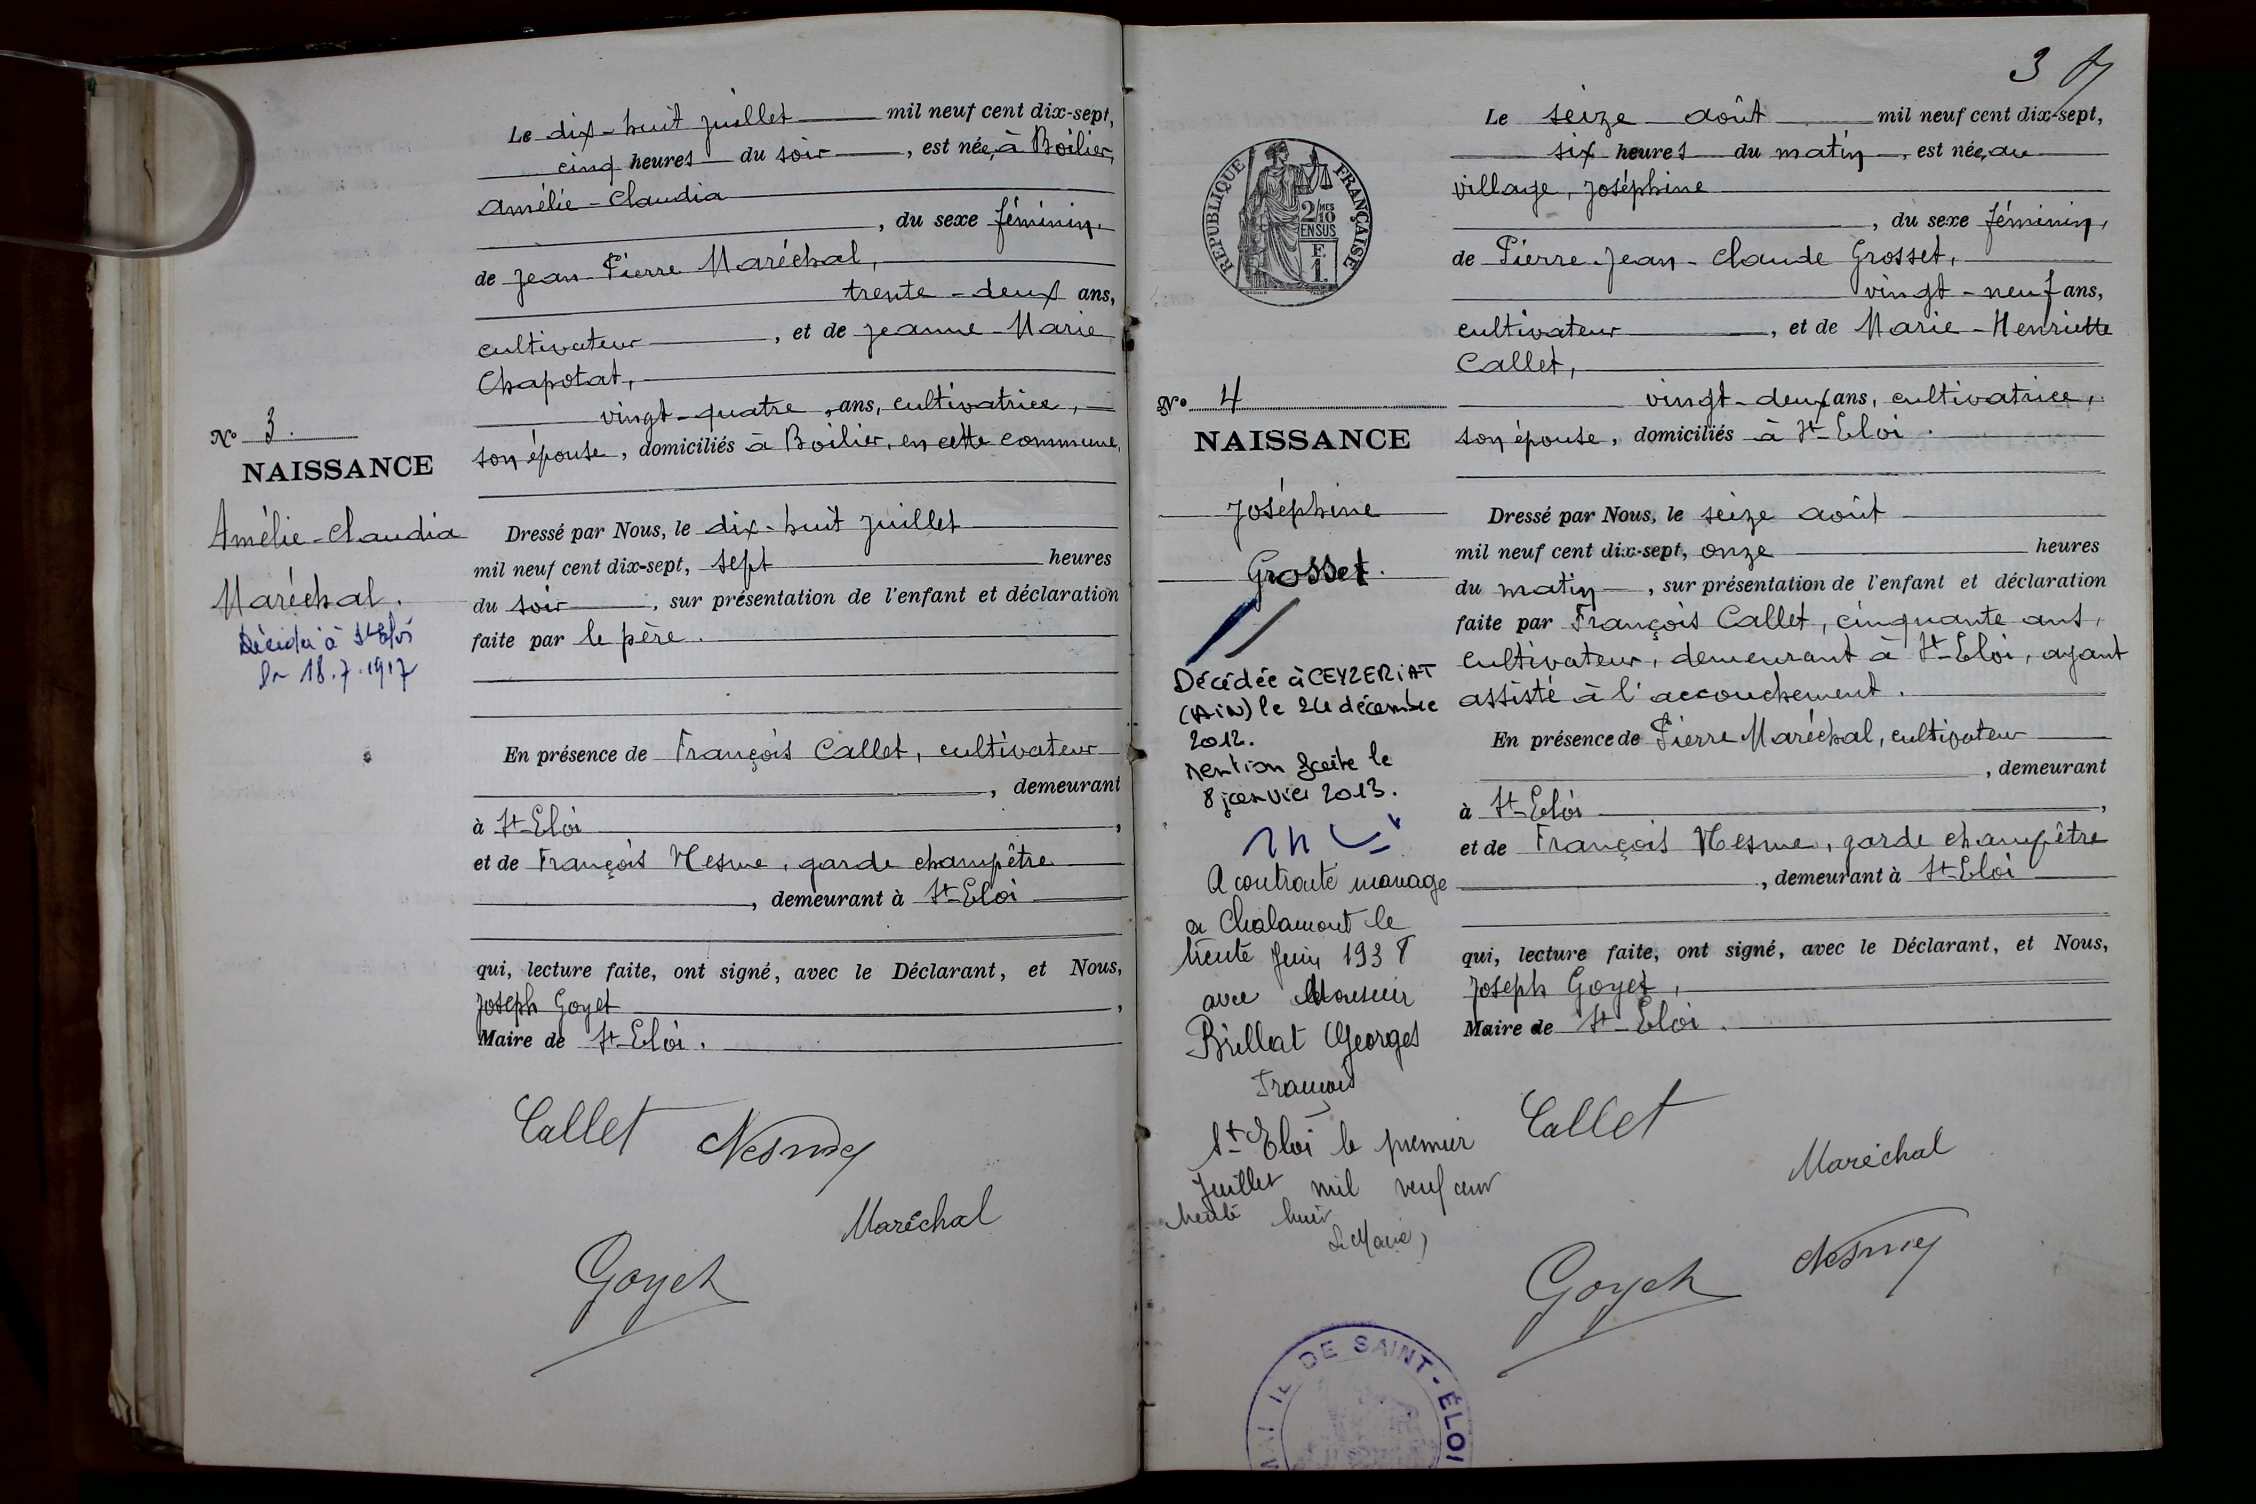 Le dix-huit juillet mil neuf cent dix-sept,
cinq heures du soir, est née, à Boilier,
Amélie-Claudia
, du sexe féminin.
de Jean Pierre Maréchal,
trente-deux ans,
cultivateur, et de Jeanne-Marie
Chapotat,
vingt-quatre ans, cultivatrice,
son épouse, domiciliés à Boilier, en cette commune,
No 3.
NAISSANCE
Amélie-Claudia
Maréchal.
Décédée à St Eloi
le 18.7.1917
Dressé par Nous, le dix-huit juillet
mil neuf cent dix-sept, sept heures
du soir, sur présentation de l'enfant et déclaration
faite par le père.
En présence de François Callet, cultivateur
, demeurant
à St-Eloi,
et de François Nesme, garde champêtre
, demeurant à St-Eloi
qui, lecture faite, ont signé, avec le Déclarant, et Nous,
Joseph Goyet,
Maire de St-Eloi.
Callet Nesme
Maréchal
Goyet
3
REPUBLIQUE FRANÇAISE
2/10 MES
EN SUS
F
1.
Le seize août mil neuf cent dix-sept,
six heures du matin, est née, au
village, Joséphine
, du sexe féminin,
de Pierre-Jean-Claude Grosset,
vingt-neuf ans,
cultivateur, et de Marie-Henriette
Callet,
vingt-deux ans, cultivatrice,
son épouse, domiciliés à St-Eloi.
No 4
NAISSANCE
Joséphine
Grosset.
Décédée à CEYZERIAT
(AIN) le 24 décembre
2012.
Mention faite le
8 janvier 2013.
A contracté mariage
à Chalamont le
trente Juin 1938
avec Monsieur
Brillat Georges
François
St Eloi le premier
Juillet mil neuf cent
trente huit
Le Maire,
Dressé par Nous, le seize août
mil neuf cent dix-sept, onze heures
du matin, sur présentation de l'enfant et déclaration
faite par François Callet, cinquante ans,
cultivateur, demeurant à St-Eloi, ayant
assisté à l'accouchement.
En présence de Pierre Maréchal, cultivateur
, demeurant
à St-Eloi,
et de François Nesme, garde champêtre
, demeurant à St-Eloi
qui, lecture faite, ont signé, avec le Déclarant, et Nous,
Joseph Goyet,
Maire de St-Eloi.
Callet
Maréchal
Nesme
Goyet
DE SAINT-ÉLOI